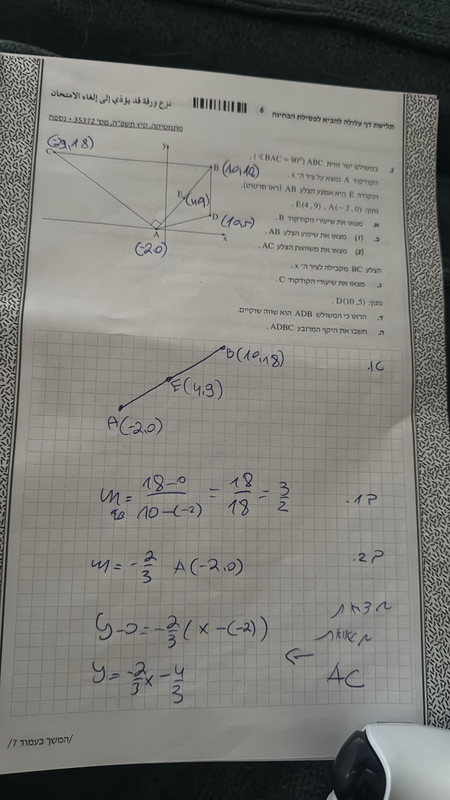 תלישת דף עלולה להביא לפסילת הבחינה
6
نزع ورقة قد يؤدي إلى إلغاء الامتحان
מתמטיקה, קיץ תשפ"ה, מס' 35372 + נספח
2. במשולש ישר זווית ABC (∢BAC = 90°),
הקודקוד A נמצא על ציר ה־ x.
הנקודה E היא אמצע הצלע AB (ראו סרטוט).
נתון: E(4, 9) , A(−2, 0).
א. מצאו את שיעורי הקודקוד B.
ב. (1) מצאו את שיפוע הצלע AB.
(2) מצאו את משוואת הצלע AC.
הצלע BC מקבילה לציר ה־ x.
ג. מצאו את שיעורי הקודקוד C.
נתון: D(10, 5).
ד. הראו כי המשולש ADB הוא שווה שוקיים.
ה. חשבו את היקף המרובע ADBC.
y
C
B (10,18)
E (4,9)
D (10,5)
A
x
(-2,0)
B(10,18)
E(4,9)
A(-2,0)
.1א
m AB = 18-0 / 10-(-2) = 18/18 = 3/2
.1ב
m = -2/3 A(-2,0)
.2ב
y-0 = -2/3 (x-(-2))
y = -2/3 x - 4/3
← AC
/המשך בעמוד 7/